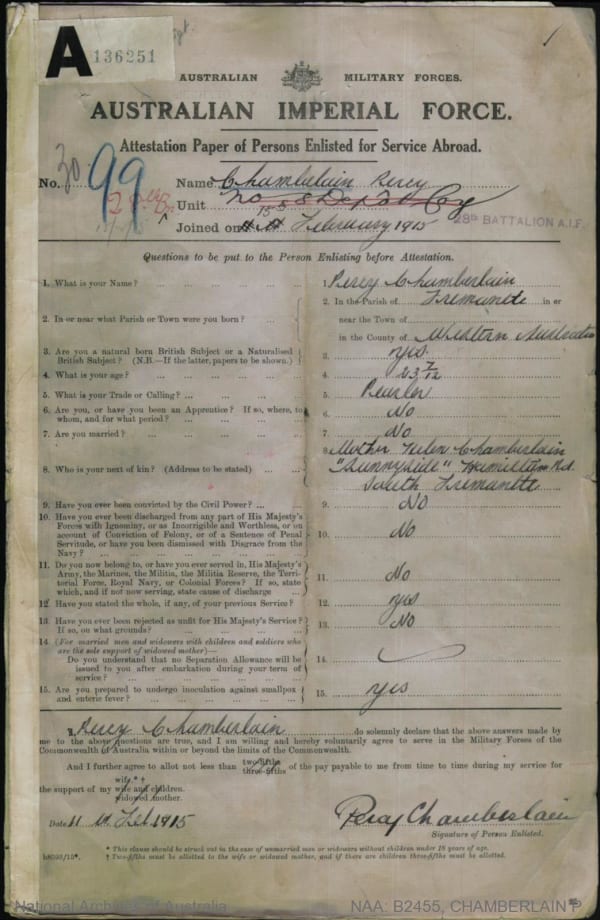 A
136251
AUSTRALIAN MILITARY FORCES.
AUSTRALIAN IMPERIAL FORCE.
Attestation Paper of Persons Enlisted for Service Abroad.
No. 30 99
Name Chamberlain Percy
Unit No 58 Depot Coy
28th BATTALION A.I.F.
Joined on February 1915
Questions to be put to the Person Enlisting before Attestation.
1. What is your Name? ... 1. Percy Chamberlain
2. In or near what Parish or Town were you born? ... 2. In the Parish of Fremantle in or
near the Town of
in the County of Western Australia
3. Are you a natural born British Subject or a Naturalised
British Subject? (N.B.—If the latter, papers to be shown.) 3. yes
4. What is your age? ... 4. 23 7/12
5. What is your Trade or Calling? ... 5.
6. Are you, or have you been an Apprentice? If so, where, to
whom, and for what period? ... 6. No
7. Are you married? ... 7. No
8. Who is your next of kin? (Address to be stated) ... 8. Mother Helen Chamberlain
"Sunnyside" Hamilton Rd.
South Fremantle
9. Have you ever been convicted by the Civil Power? ... 9. No
10. Have you ever been discharged from any part of His Majesty's
Forces with Ignominy, or as Incorrigible and Worthless, or on
account of Conviction of Felony, or of a Sentence of Penal
Servitude, or have you been dismissed with Disgrace from the
Navy? ... 10. No
11. Do you now belong to, or have you ever served in, His Majesty's
Army, the Marines, the Militia, the Militia Reserve, the Terri-
torial Force, Royal Navy, or Colonial Forces? If so, state
which, and if not now serving, state cause of discharge ... 11. No
12. Have you stated the whole, if any, of your previous Service? 12. yes
13. Have you ever been rejected as unfit for His Majesty's Service?
If so, on what grounds? ... 13. No
14. (For married men and widowers with children and soldiers who
are the sole support of widowed mother)—
Do you understand that no Separation Allowance will be
issued to you after embarkation during your term of
service? ... 14.
15. Are you prepared to undergo inoculation against smallpox
and enteric fever? ... 15. yes
I, Percy Chamberlain do solemnly declare that the above answers made by
me to the above questions are true, and I am willing and hereby voluntarily agree to serve in the Military Forces of the
Commonwealth of Australia within or beyond the limits of the Commonwealth.
And I further agree to allot not less than two-fifths three-fifths of the pay payable to me from time to time during my service for
the support of my wife.*† wife and children. widowed mother.
Date 11 th Feb 1915
Percy Chamberlain
Signature of Person Enlisted.
* This clause should be struck out in the case of unmarried men or widowers without children under 18 years of age.
† Two-fifths must be allotted to the wife or widowed mother, and if there are children three-fifths must be allotted.
National Archives of Australia
NAA: B2455, CHAMBERLAIN P